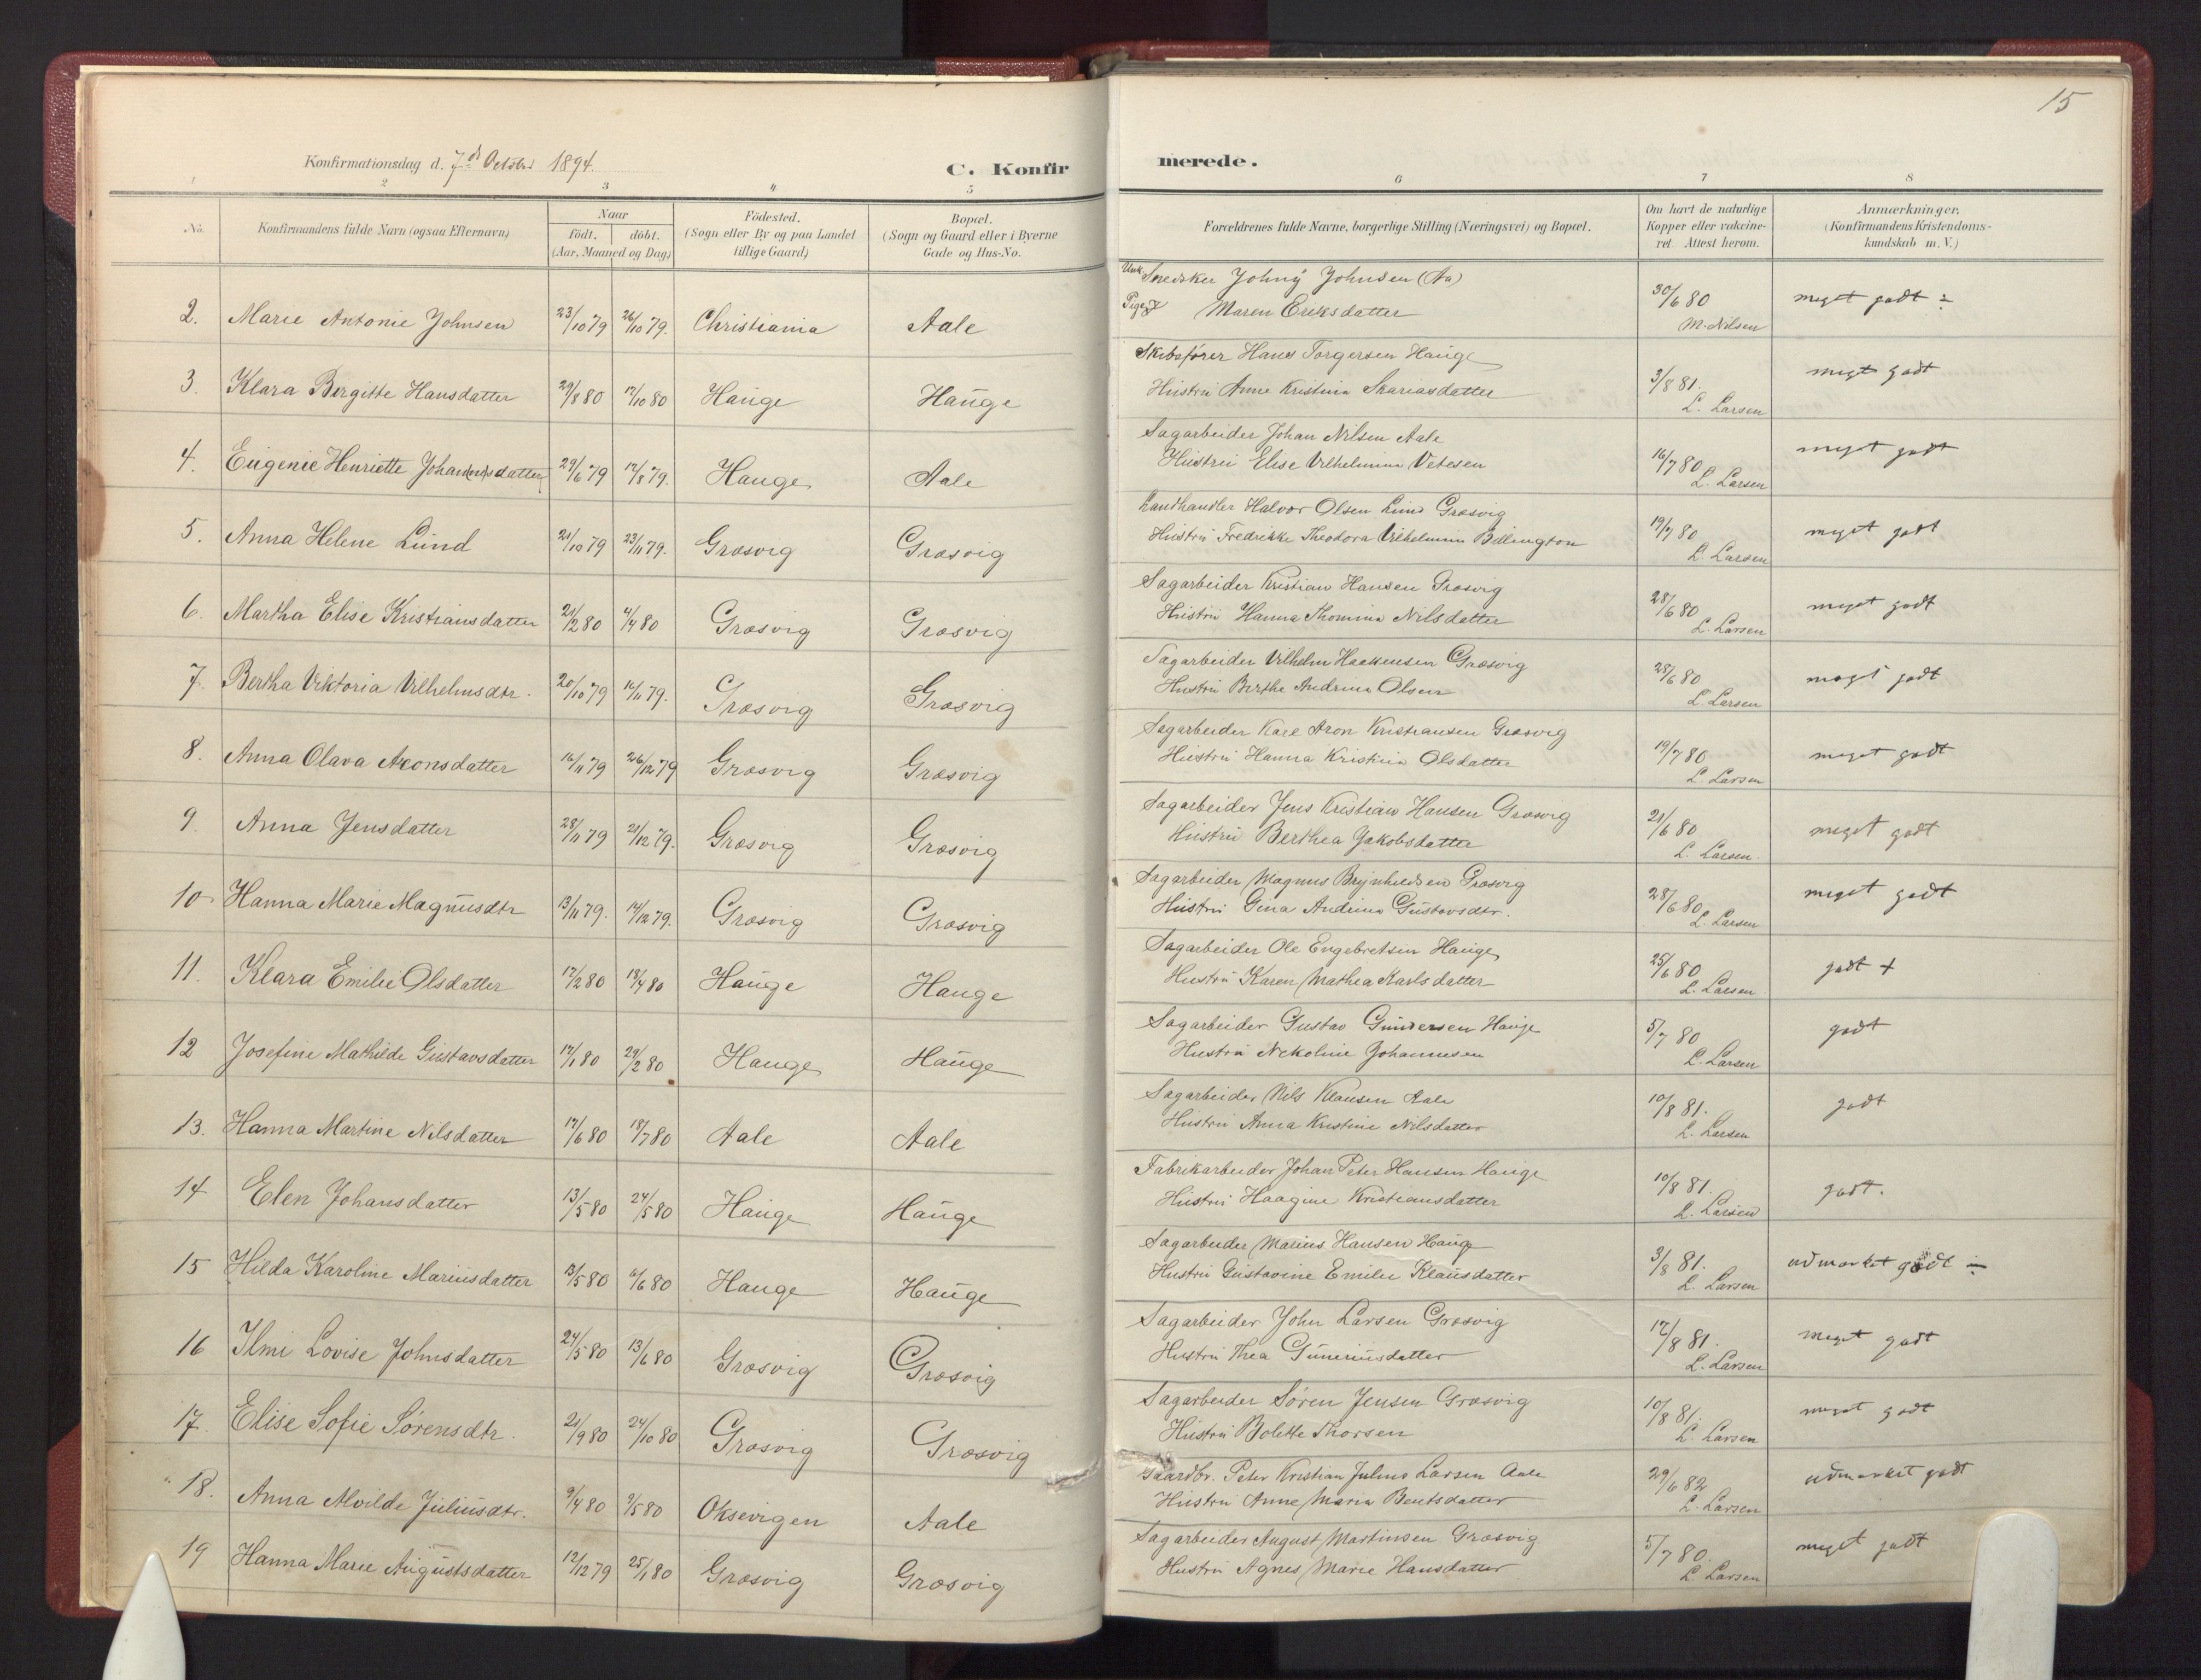 15
Konfirmationsdag d. 7de October 1894.
C. Konfirmerede.
1 2 3 4 5 6 7 8
No.
Konfirmandens fulde Navn (ogsaa Efternavn)
Naar
födt. döbt.
(Aar, Maaned og Dag)
Födested.
(Sogn eller By og paa Landet
tillige Gaard)
Bopæl.
(Sogn og Gaard eller i Byerne
Gade og Hus-No.
Forældrenes fulde Navne, borgerlige Stilling (Næringsvei) og Bopæl.
Om havt de naturlige
Kopper eller vakcine-
ret. Attest herom.
Anmærkninger.
(Konfirmandens Kristendoms-
kundskab m. V.)
Umk. Snedsker Johny Johnsen (Aa)
2. Marie Antonie Johnsen 23/10 79 26/10 79. Christiania Aale Pige Maren Eriksdatter 30/6 80 M. Nilsen meget godt
Skibsfører Hans Torgersen Hauge
3. Klara Bergitte Hansdatter 29/8 80 17/10 80 Hauge Hauge Hustru Anne Kristina Skariasdatter 3/8 81. L. Larsen meget godt
Sagarbeider Johan Nilsen Aale
4. Eugenie Henriette Johannsdatter 29/6 79 17/8 79. Hauge Aale Hustru Elise Vilhelmine Vetesen 16/7 80 L. Larsen meget godt
Landhandler Halvor Olsen Lund Græsvig
5. Anna Helene Lund 21/10 79 23/11 79. Græsvig Græsvig Hustru Fredrikke Theodora Vilhelmine Billington 19/7 80 L. Larsen meget godt
Sagarbeider Kristian Hansen Græsvig
6. Martha Elise Kristiansdatter 21/2 80 4/4 80 Græsvig Græsvig Hustru Hanna Thomina Nilsdatter 28/6 80 L. Larsen meget godt
Sagarbeider Vilhelm Haakensen Græsvig
7. Bertha Viktoria Vilhelmsdtr. 20/10 79 16/11 79. Græsvig Græsvig Hustru Berthe Andrine Olsen 28/6 80 L. Larsen meget godt
Sagarbeider Karl Aron Kristiansen Græsvig
8. Anna Olava Aronsdatter 16/11 79 26/12 79 Græsvig Græsvig Hustru Hanna Kristina Olsdatter 19/7 80 L. Larsen meget godt
Sagarbeider Jens Kristian Hansen Græsvig
9. Anna Jensdatter 28/11 79 21/12 79. Græsvig Græsvig Hustru Berthea Jakobsdatter 21/6 80 L. Larsen. meget godt
Sagarbeider Magnus Brynhildsen Græsvig
10 Hanna Marie Magnusdtr 13/11 79. 14/12 79. Græsvig Græsvig Hustru Gina Andrine Gustavsdtr. 28/6 80 L. Larsen meget godt
Sagarbeider Ole Engebretsen Hauge
11. Klara Emilie Olsdatter 17/2 80 18/4 80 Hauge Hauge Hustru Karen Mathea Karlsdatter 25/6 80 L. Larsen godt +
Sagarbeider Gustav Gundersen Hauge
12 Josefine Mathilde Gustavsdatter 17/1 80 29/2 80 Hauge Hauge Hustru Nekoline Johannesen 5/7 80 L. Larsen godt
Sagarbeider Nils Klausen Aale
13. Hanna Martine Nilsdatter 17/6 80 18/7 80 Aale Aale Hustru Anna Kristine Nilsdatter 10/8 81. L. Larsen godt
Fabrikarbeider Johan Peter Hansen Hauge
14 Elen Johansdatter 13/5 80 24/5 80 Hauge Hauge Hustru Haagine Kristiansdatter 10/8 81. L. Larsen godt.
Sagarbeider Marius Hansen Hauge
15 Hilda Karoline Mariusdatter 13/5 80 6/6 80 Hauge Hauge Hustru Gustavine Emilie Klausdatter 3/8 81. L. Larsen udmærket godt ÷
Sagarbeider John Larsen Græsvig
16 Ilmi Lovise Johnsdatter 24/5 80 13/6 80 Græsvig Græsvig Hustru Thea Guneriusdatter 17/8 81. L. Larsen meget godt
Sagarbeider Søren Jensen Græsvig
17. Elise Sofie Sørensdtr. 21/9 80 24/10 80 Græsvig Græsvig Hustru Bolette Thorsen 10/8 81. L. Larsen meget godt
Gaardbr. Peter Kristian Julius Larsen Aale
18. Anna Alvilde Juliusdtr. 9/4 80 9/5 80 Oksevigen Aale Hustru Anne Maria Bentsdatter 29/6 82 L. Larsen udmærket godt
Sagarbeider August Martinsen Græsvig
19 Hanna Marie Augustsdatter 12/12 79 25/1 80 Græsvig Græsvig Hustru Agnes Marie Hansdatter 5/7 80. L. Larsen meget godt